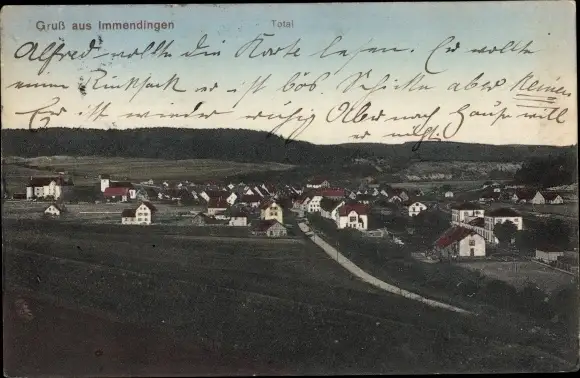 Gruß aus Immendingen
Total
Alfred wollte die Karte lesen. Er wollte
einen Rucksack er ist bös. Schicke aber Keinen
Er ist wieder ruhig Aber nach Hause will
er nicht.